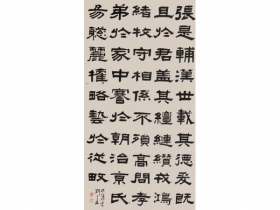 張是輔漢世載其德爰既
且於君蓋其繵縺纘戎鴻
緒牧守相係不殞高問孝
弟於家中謇於朝治京氏
易聰麗權略藝於從畋